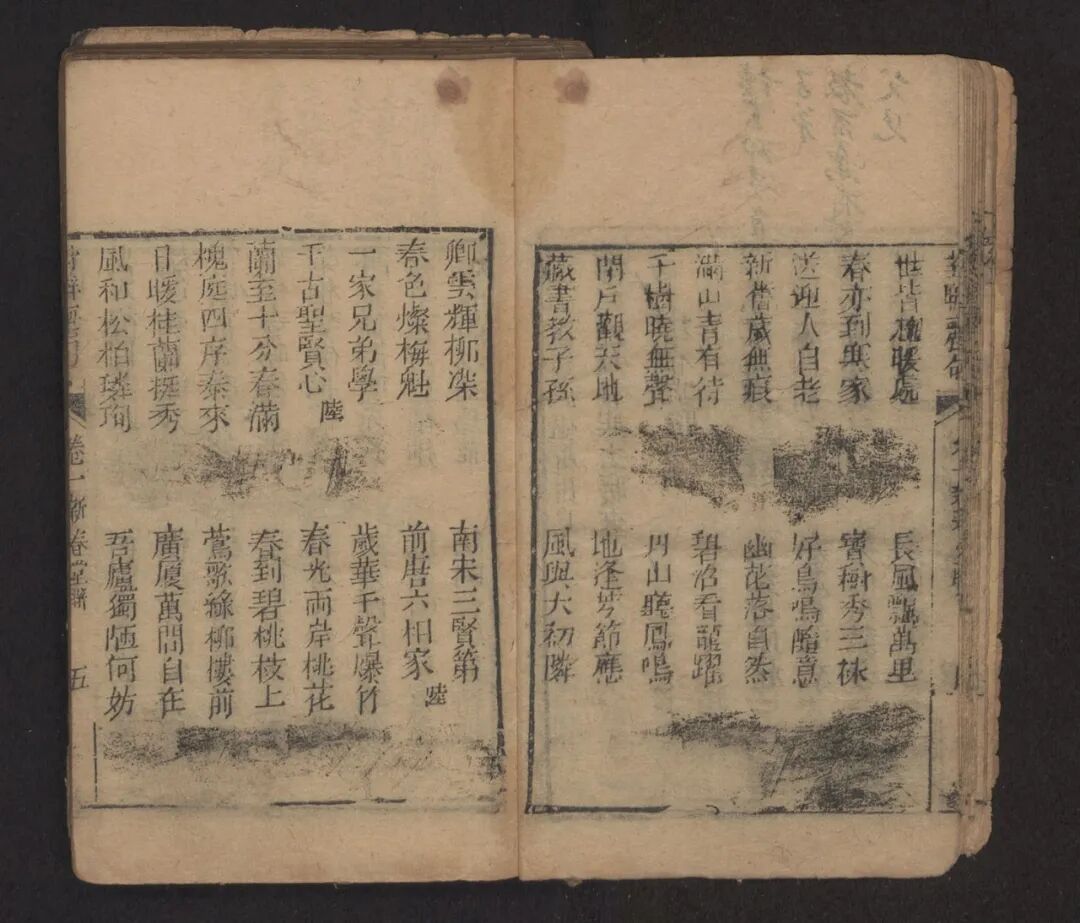 世皆暖處
春亦到寒家
送迎人自老
新舊歲無痕
滿山青有待
千樹曉無聲
閉戶觀天地
藏書教子孫
長風飄萬里
寶樹秀三株
好鳥鳴隨意
幽花落自然
碧沼看龍躍
丹山聽鳳鳴
地逢芳節應
風與大初隣
卿雲輝柳
春色燦梅魁
一家兄弟學
千古聖賢心 陸
蘭至十分春滿
槐庭四序泰來
日暖桂蘭挺秀
風和松柏璘珣
南宋三賢第
前唐六相家 陸
歲華千聲爆竹
春光兩岸桃花
春到碧桃枝上
鶯歌綠柳樓前
廣廈萬間自在
吾廬獨陋何妨
卷一 新春堂聯 五